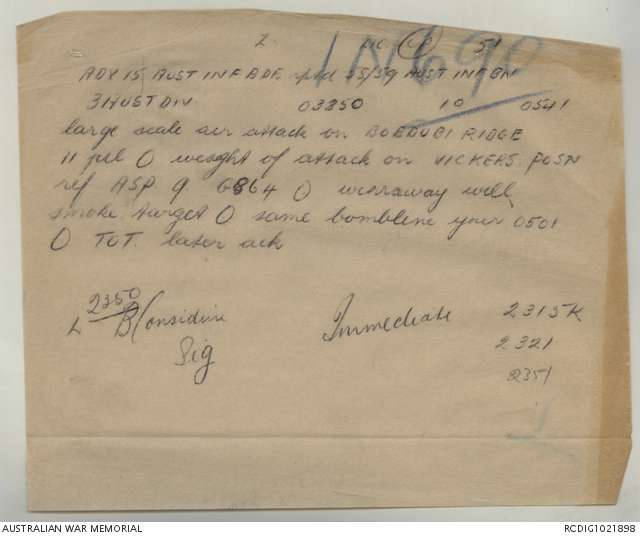 2 51
IN690
ADV 15 AUST INF BDE rptd 58/59 AUST INF BN
3 AUST DIV 03250 10 0541
large scale air attack on BOBDUBI RIDGE
11 jul O weight of attack on VICKERS POSN
ref ASP 9 6864 O wirraway will
smoke target O same bombline your 0501
O TOT later ack
2350
B Considine
Sig
Immediate
2315K
2321
2351
AUSTRALIAN WAR MEMORIAL RCDIG1021898